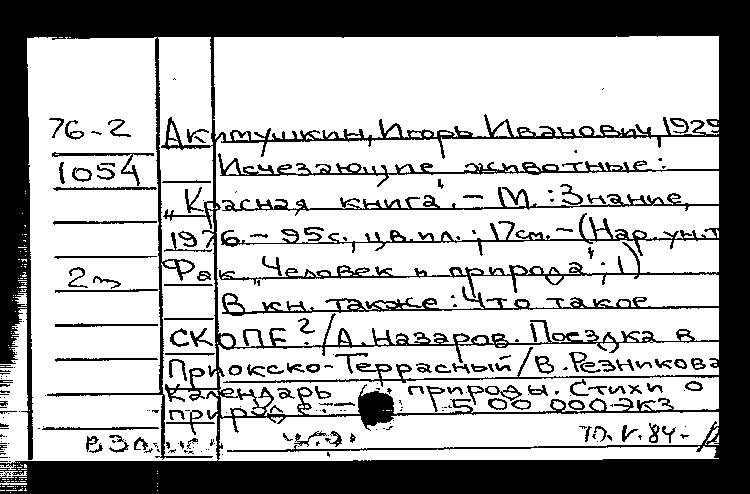 76-2 Акимушкин, Игорь Иванович, 1929
1054 Исчезающие животные:
„Красная книга". – М. : Знание,
1976. – 95с., цв.ил. ; 17см. – (Нар. ун.т
2 Фак „Человек и природа" ; 1)
В кн. также : Что такое
СКОПЕ? / А. Назаров. Поездка в
Приокско-Террасный / В. Резникова
Календарь природы. Стихи о
природе. – 500 000 экз
10.V.84-